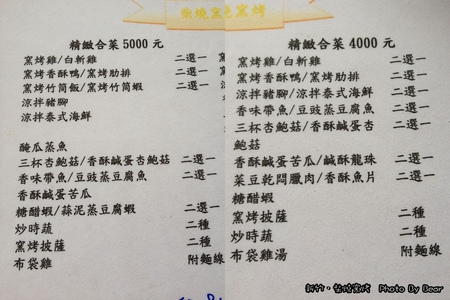 柴燒窯烤
精緻合菜 5000 元
窯烤雞/白斬雞 二選一
窯烤香酥鴨/窯烤肋排 二選一
窯烤竹筒飯/窯烤竹筒蝦 二選一
涼拌豬腳
涼拌泰式海鮮
醃瓜蒸魚
三杯杏鮑菇/香酥鹹蛋杏鮑菇 二選一
香味帶魚/豆豉蒸豆腐魚 二選一
香酥鹹蛋苦瓜
糖醋蝦/蒜泥蒸豆腐蝦 二選一
炒時蔬 二種
窯烤披薩 二種
布袋雞 附麵線
精緻合菜 4000 元
窯烤雞/白斬雞 二選一
窯烤香酥鴨/窯烤肋排 二選一
涼拌豬腳/涼拌泰式海鮮 二選一
香味帶魚/豆豉蒸豆腐魚 二選一
三杯杏鮑菇/香酥鹹蛋杏 二選一
鮑菇
香酥鹹蛋苦瓜/鹹酥龍珠 二選一
菜豆乾悶臘肉/香酥魚片 二選一
糖醋蝦
窯烤披薩 二種
炒時蔬 二種
布袋雞湯 附麵線
Photo By Bear